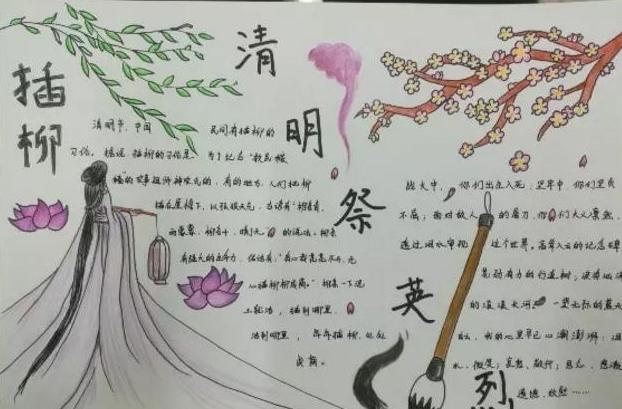 插柳
清明祭英烈
清明节，中国民间有插柳的
习俗。据说，插柳的习俗是为了纪念“教民稼
穑”的农事祖师神农氏的，有的地方，人们把柳
插在屋檐下，以预报天气，古谚有“柳条青，
雨蒙蒙；柳条干，晴了天”的说法。柳条
有强大的生命力，俗话说：“有心栽花花不开，无
心插柳柳成荫。”柳条一下泥
土就活，插到哪里，
活到哪里，年年插柳，处处
成荫。
战火中，你们出生入死；坚牢中，你们坚贞
不屈；面对敌人的屠刀，你们大义凛然。
透过泪水审视这个世界。高耸入云的纪念碑
苍劲有力的行道树；
的滚滚长河；一望无际的蓝天
我的心里早已心潮澎湃：泪
水、微笑；哀愁、敬佩；思念、感激
遗憾、欣慰……